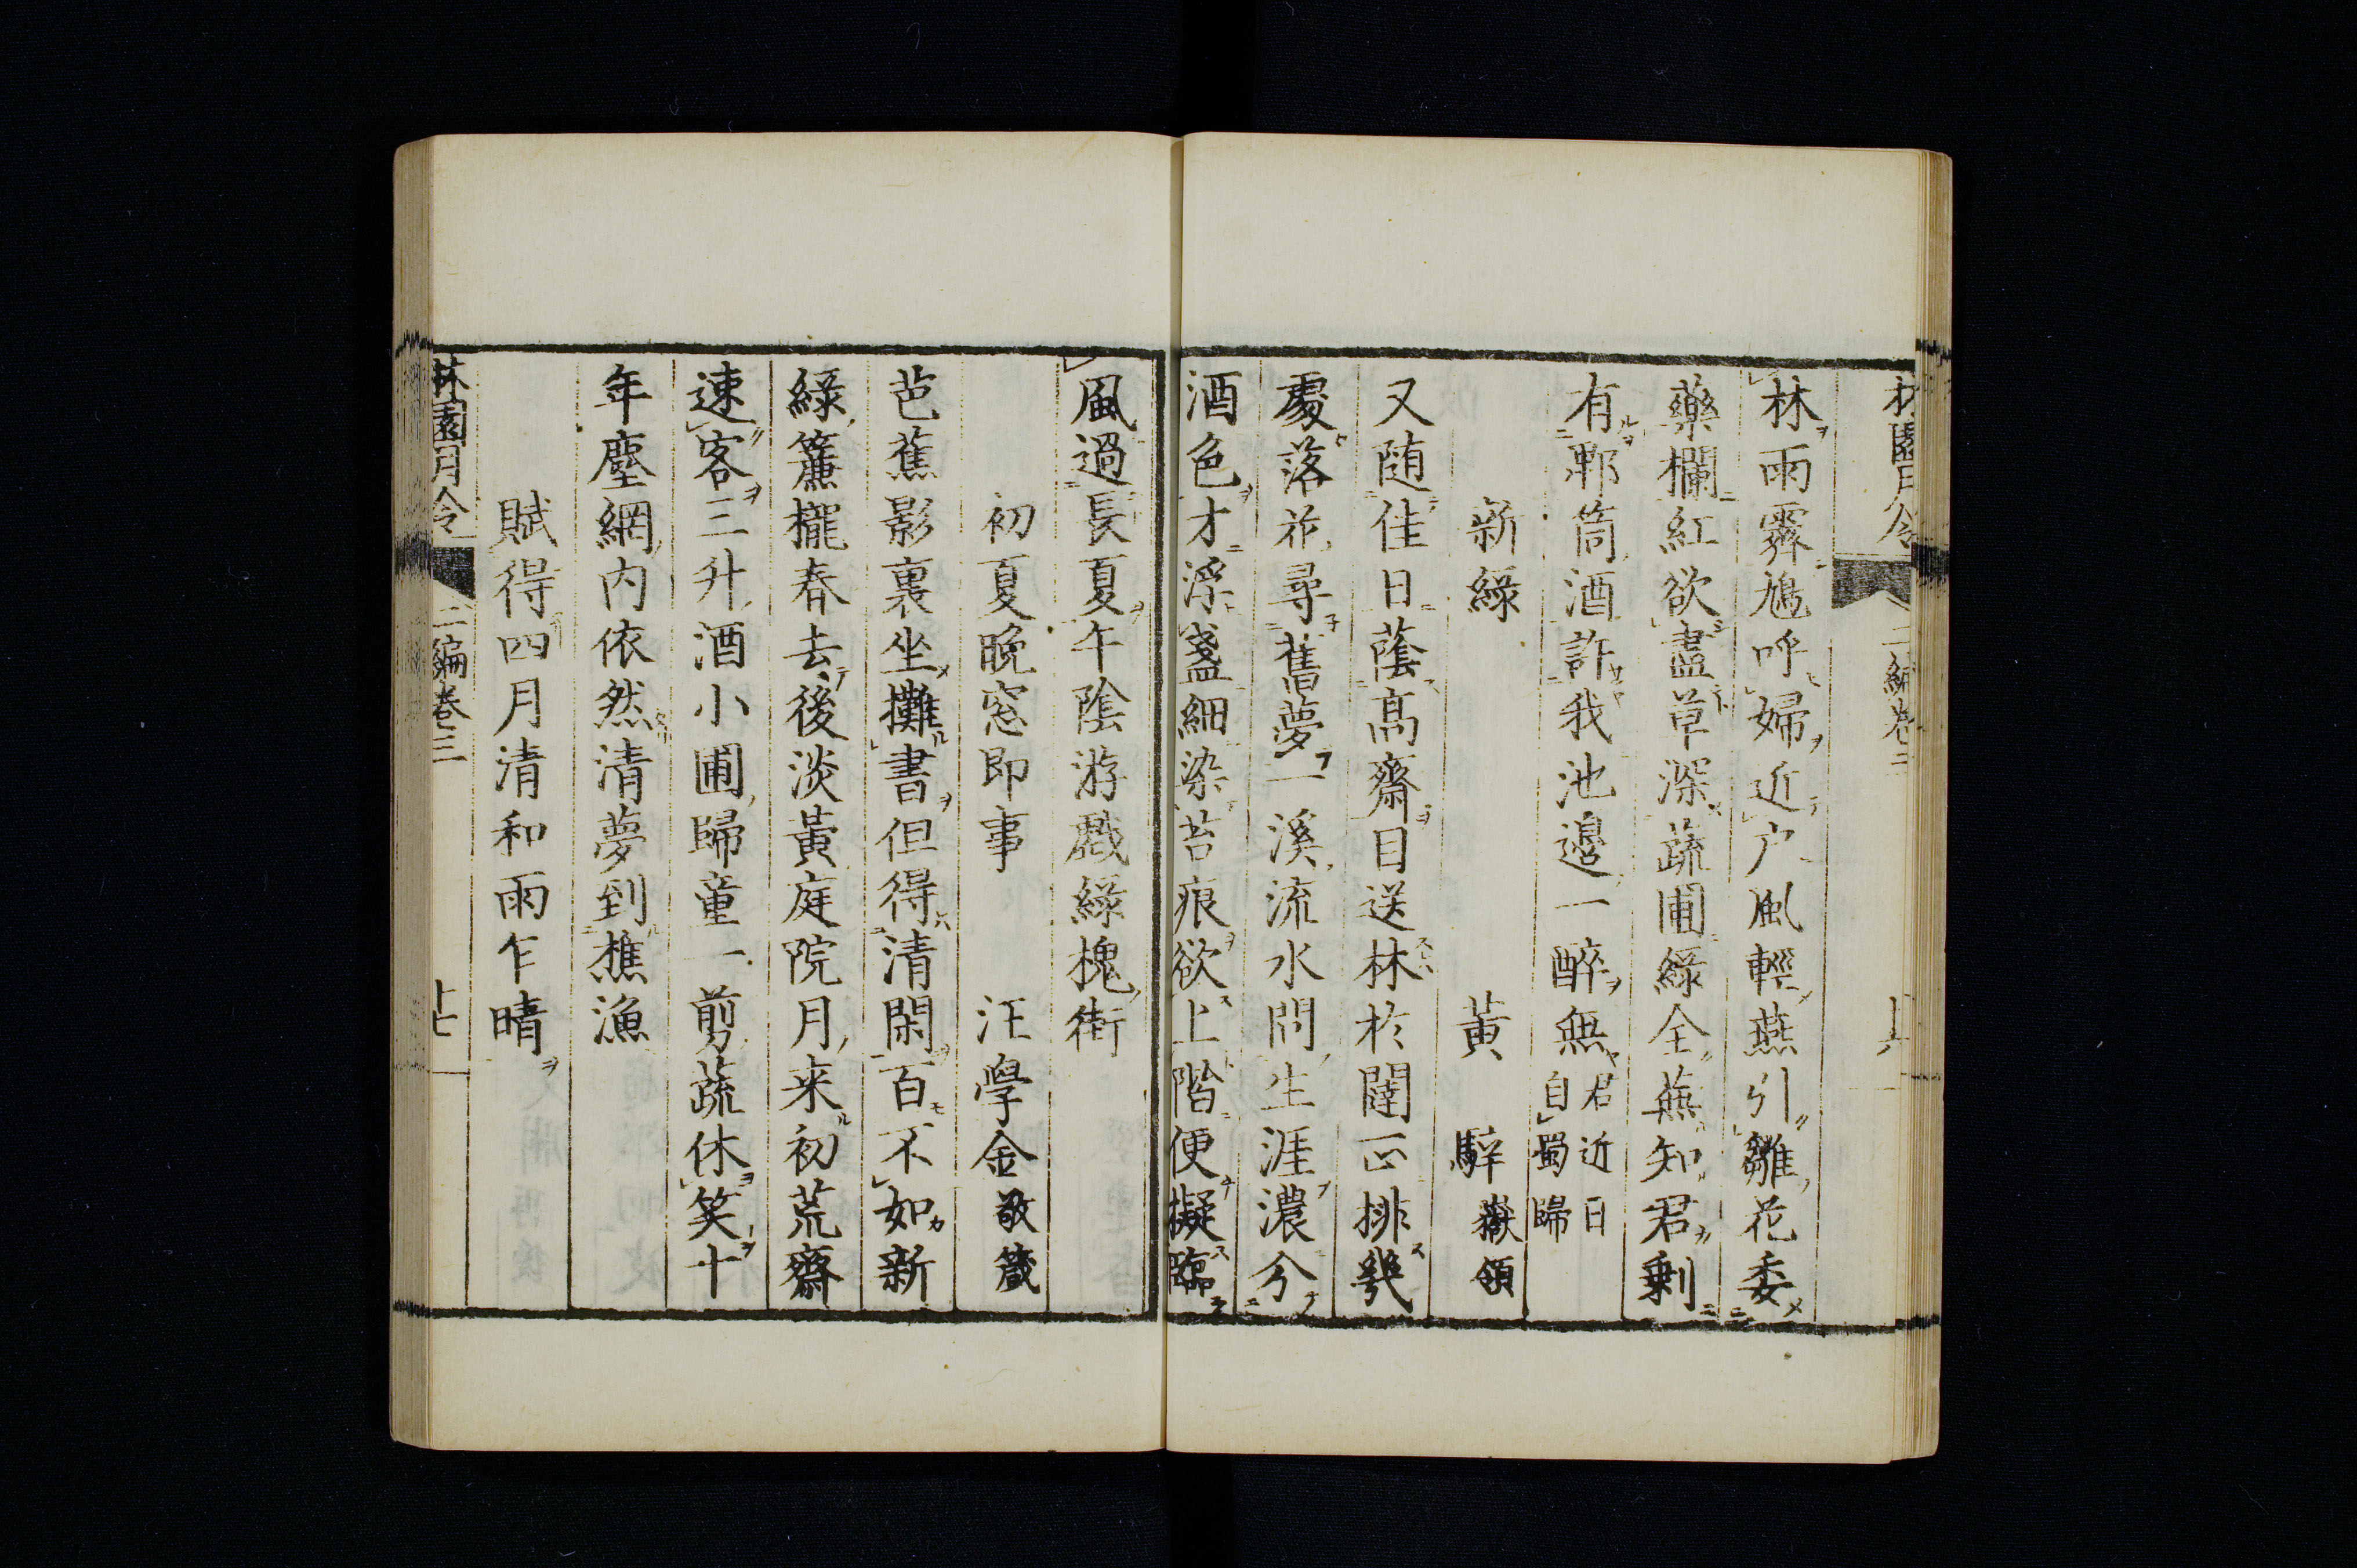 林園月令 二編卷三
林雨霽鳩呼婦近户風輕燕引雛花委
藥欄紅欲盡草深蔬圃綠全蕪知君剩
有郫筒酒許我池邊一醉無君近日自蜀歸
新綠 黃騂嶽領
又随佳日蔭高齋目送林於闥正排幾
處落花尋舊夢一溪流水問生涯濃分
酒色才浮盞細染苔痕欲上階便擬臨
風過長夏午陰游戲綠槐街
初夏晚窓即事 汪學金敬箴
芭蕉影裏坐攤書但得清閑百不如新
綠簾櫳春去後淡黃庭院月来初荒齋
速客三升酒小圃歸童一剪蔬休笑十
年塵網内依然清夢到樵漁
賦得四月清和雨乍晴
林園月令 二編卷三 十七